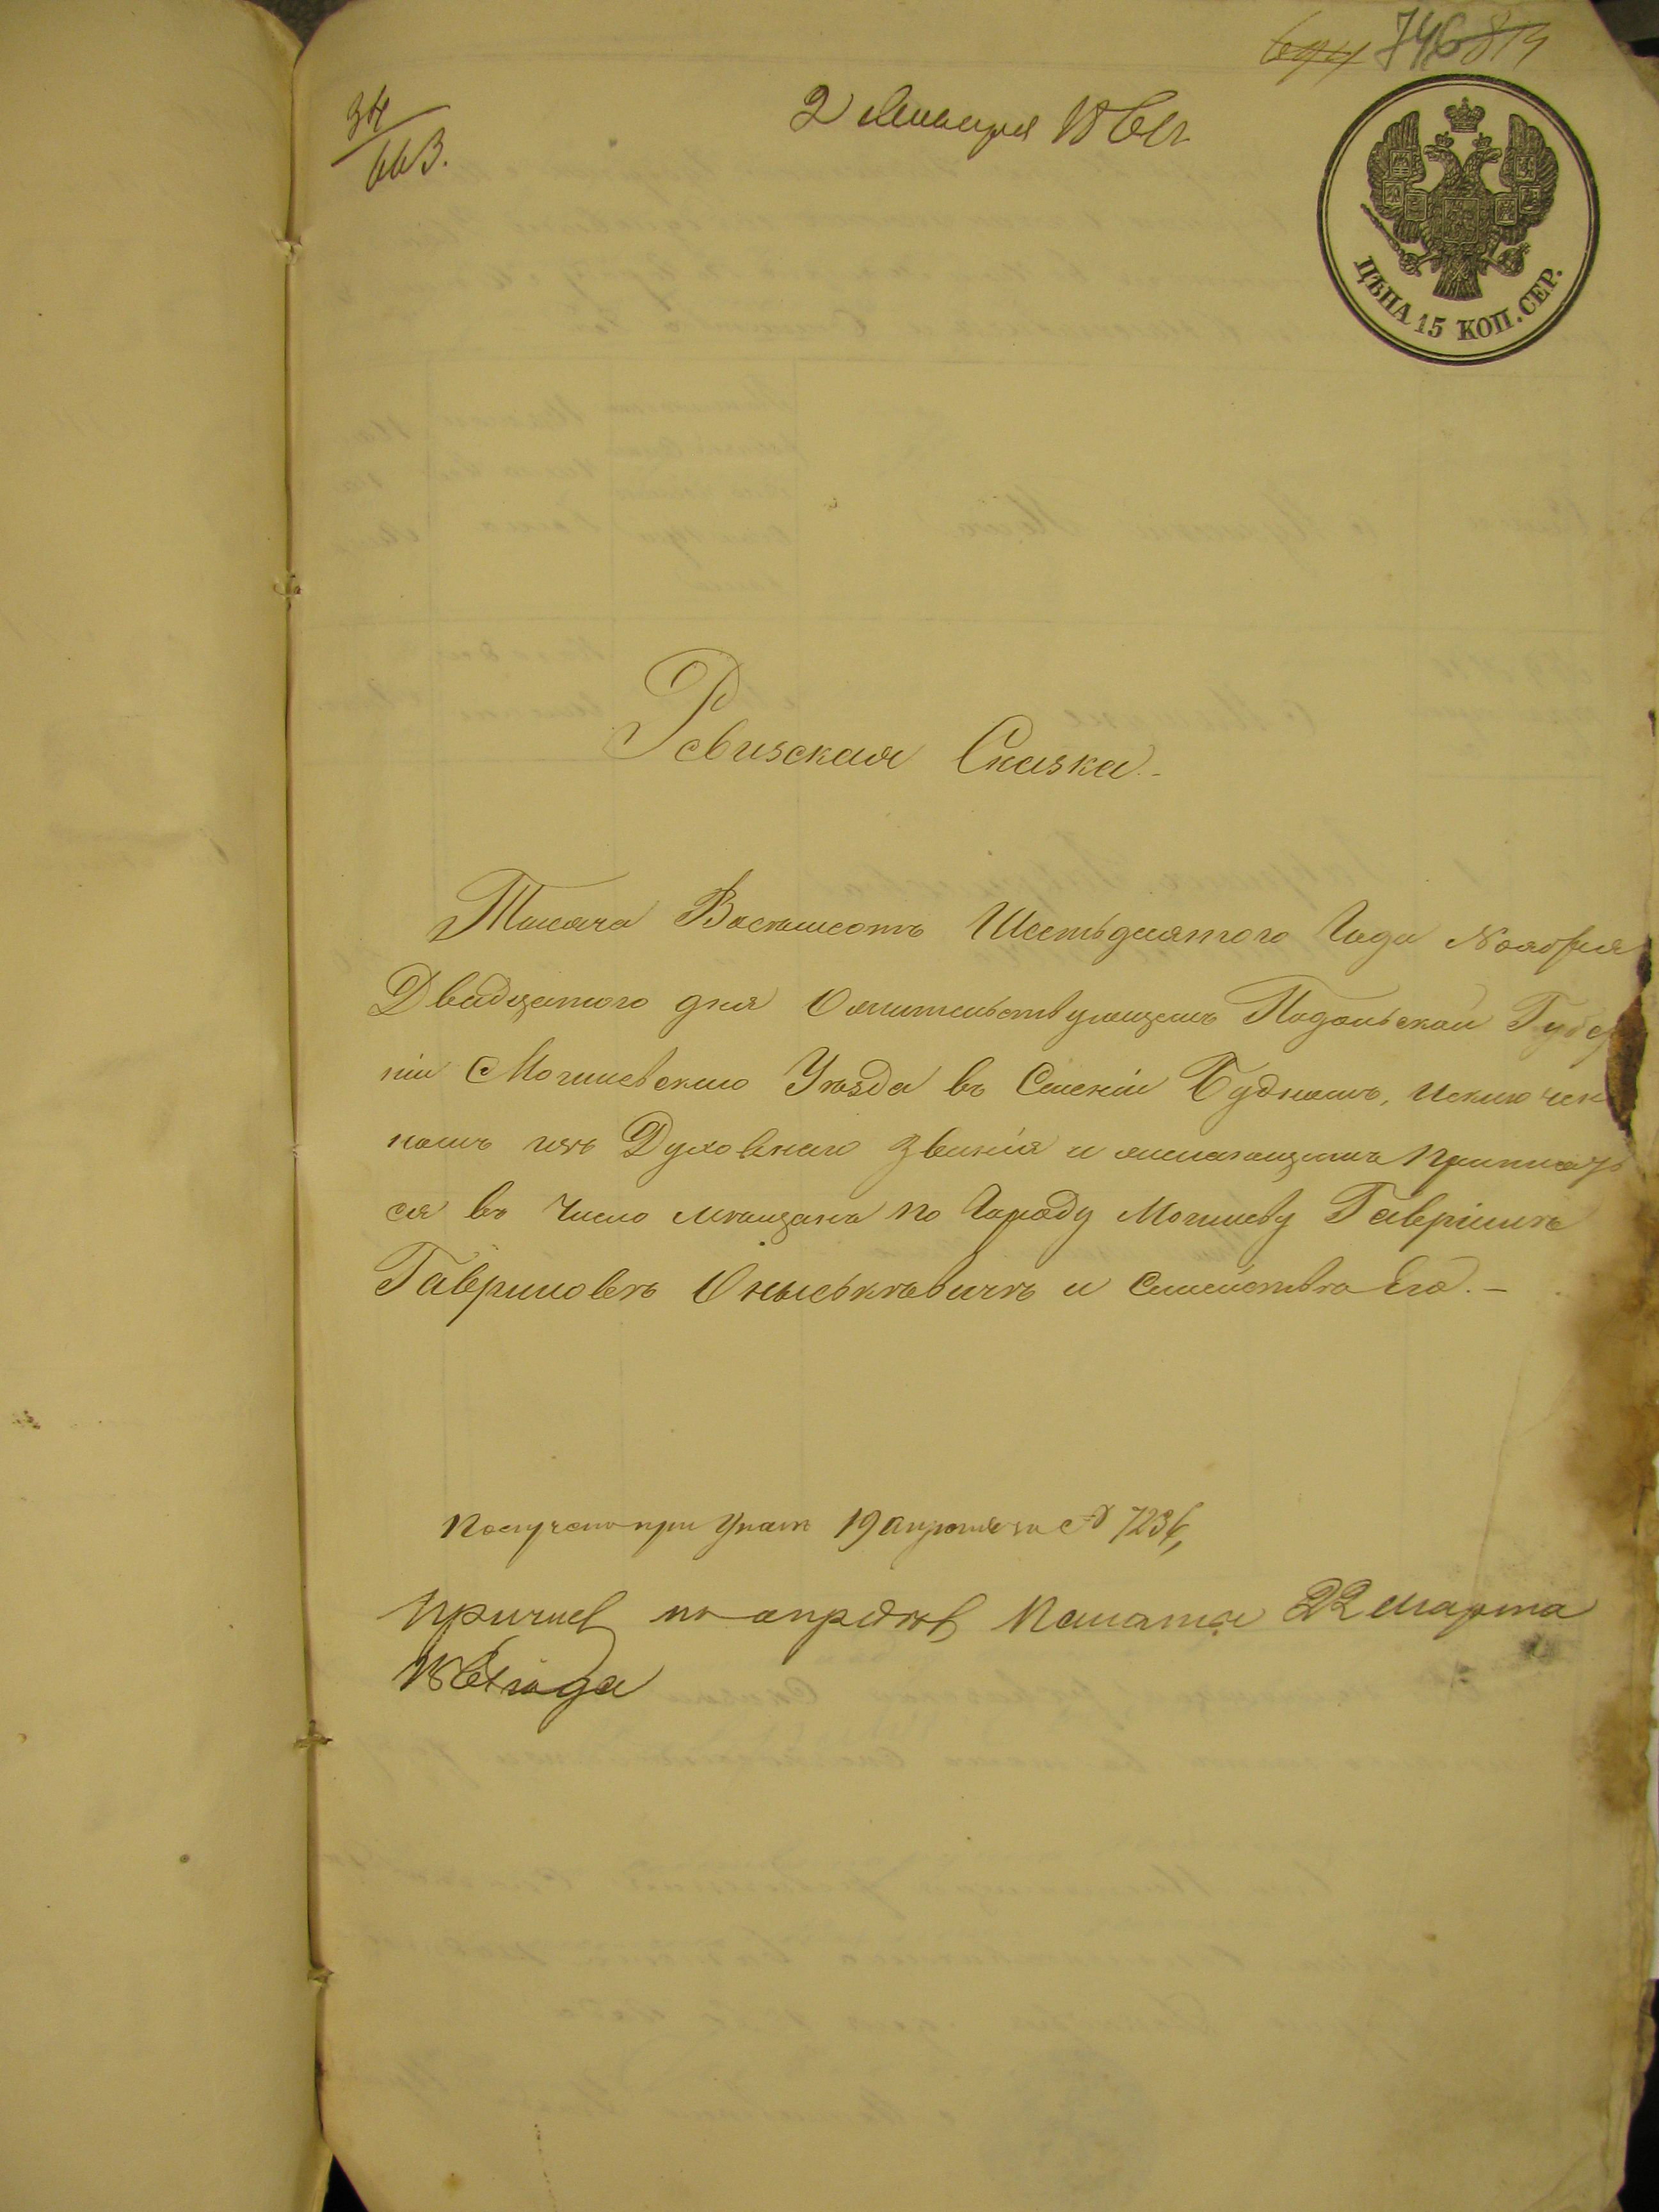 694 746 814
34
663.
2 Января 1861
ЦѢНА 15 КОП. СЕР.
Ревизская Сказка.-
Тысяча Восемьсотъ Шестьдесятого Года Ноября
Двадцатого дня О жительствующемъ Подольской Губер
ніи Могилевского Уѣзда въ Селеніи Буднемъ, исключен
номъ изъ Духовнаго Званія и желающемъ приписать
ся въ Число мѣщанъ по Городу Могилеву Гавріилѣ
Гавриловѣ Оныськѣвичѣ и Семействѣ Его.-
Получено при Указѣ 19 апрѣля за № 7236,
Причис по опредѣ Палаты 22 марта
1861 года